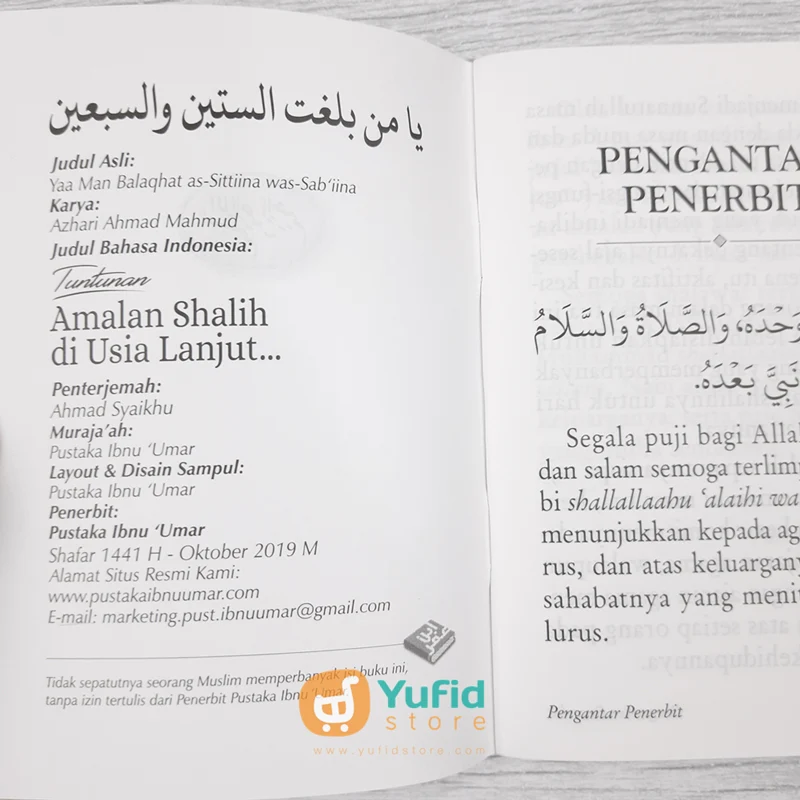 يا من بلغت الستين والسبعين
Judul Asli:
Yaa Man Balaqhat as-Sittiina was-Sab‘iina
Karya:
Azhari Ahmad Mahmud
Judul Bahasa Indonesia:
Tuntunan
Amalan Shalih
di Usia Lanjut...
Penterjemah:
Ahmad Syaikhu
Muraja’ah:
Pustaka Ibnu ‘Umar
Layout & Disain Sampul:
Pustaka Ibnu ‘Umar
Penerbit:
Pustaka Ibnu ‘Umar
Shafar 1441 H - Oktober 2019 M
Alamat Situs Resmi Kami:
www.pustakaibnuumar.com
E-mail: marketing.pust.ibnuumar@gmail.com
Tidak sepatutnya seorang Muslim memperbanyak isi buku ini,
tanpa izin tertulis dari Penerbit Pustaka Ibnu ‘Umar.
PENGANTA
PENERBIT
وَحْدَهُ، وَالصَّلَاةُ وَالسَّلَامُ
نَبِيَّ بَعْدَهُ.
Segala puji bagi Allah
dan salam semoga terlimp
bi shallallaahu ‘alaihi wa
menunjukkan kepada ag
rus, dan atas keluargany
sahabatnya yang menit
lurus.
Pengantar Penerbit
Yufid
store
www.yufidstore.com